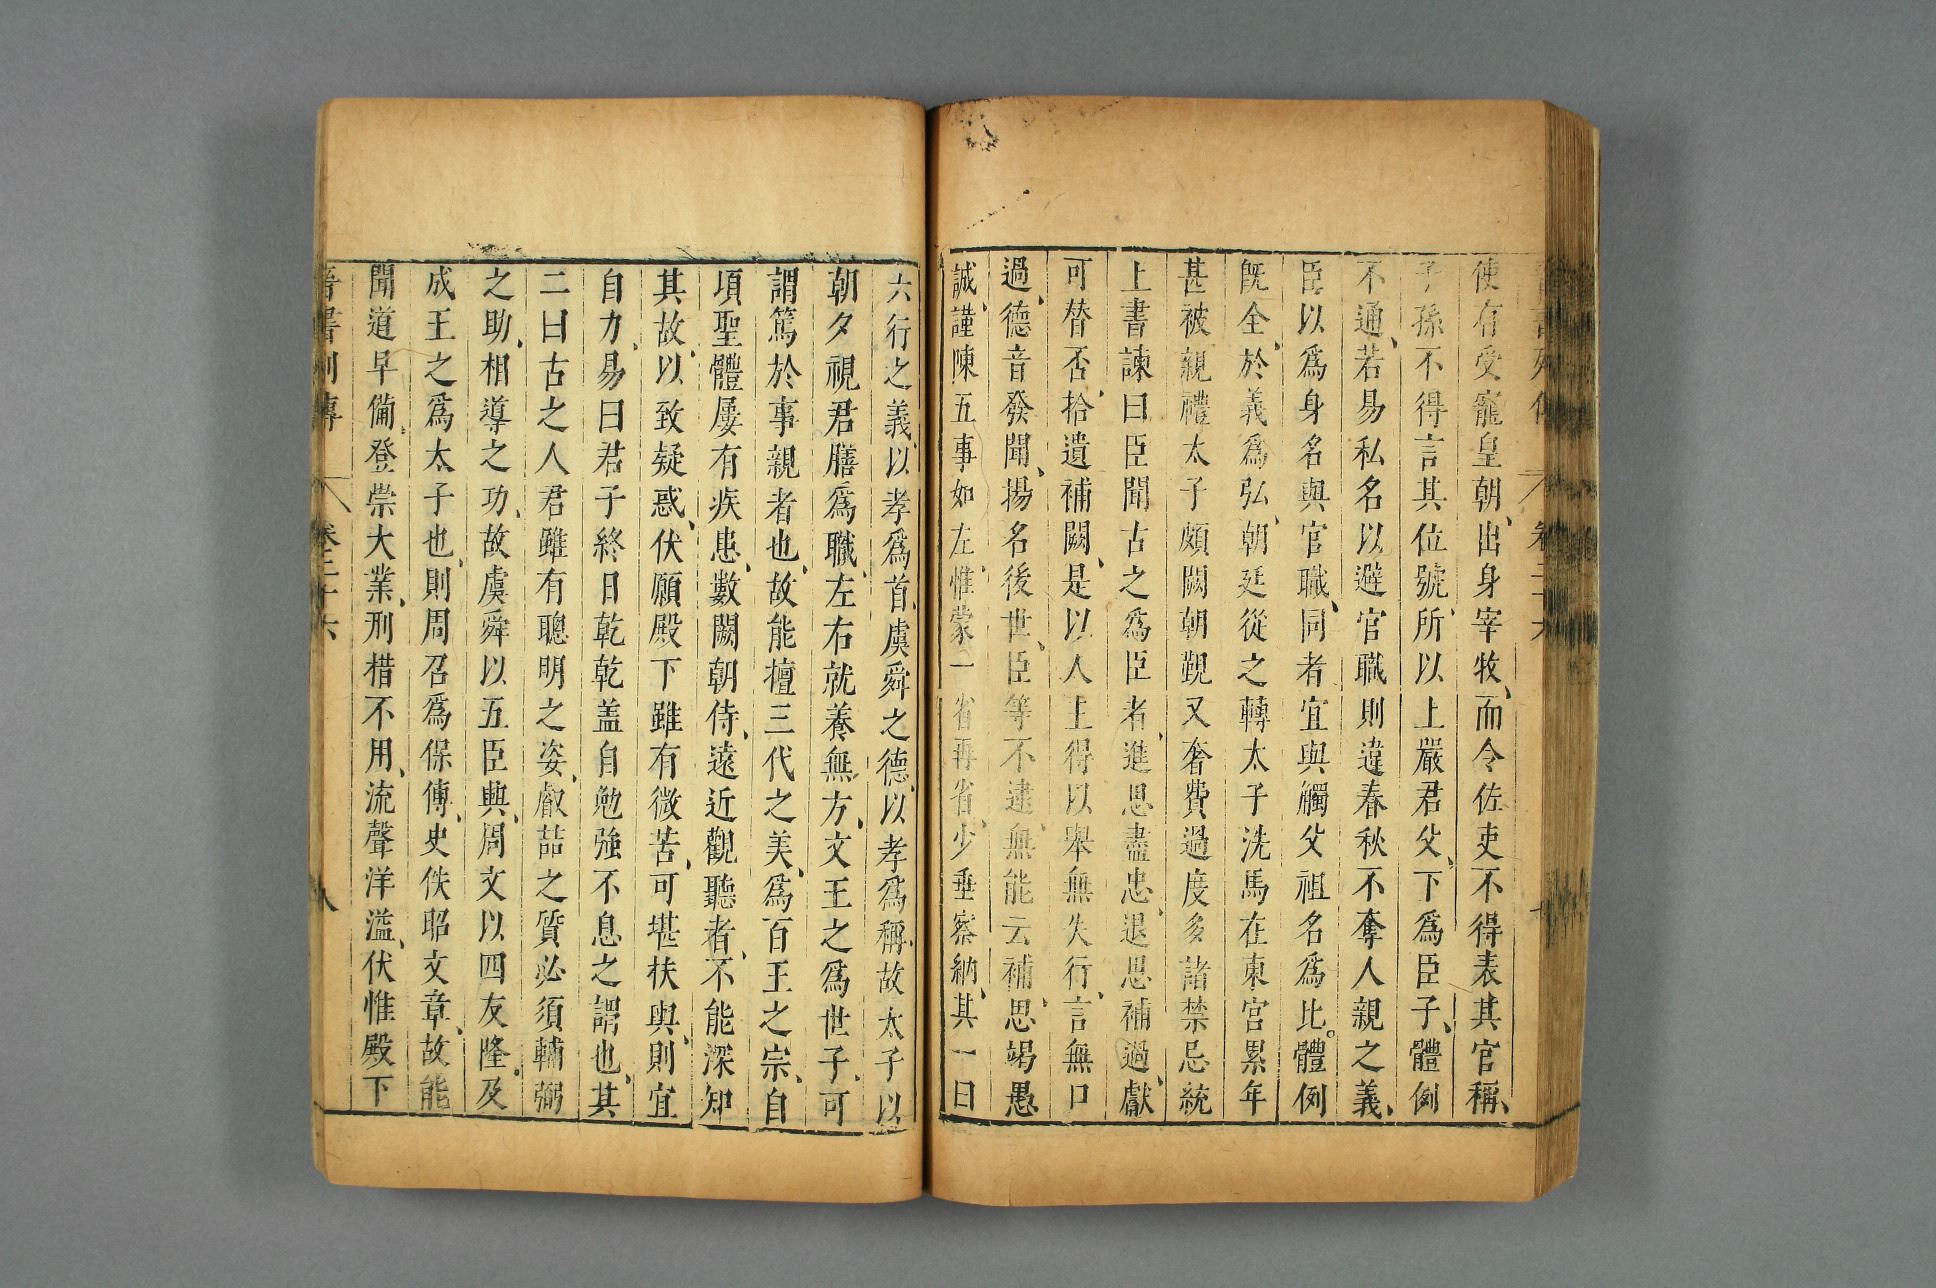 使有受寵皇朝出身宰牧而令佐吏不得表其官稱
子孫不得言其位號所以上嚴君父下爲臣子體例
不通若易私名以避官職則違春秋不奪人親之義
臣以爲身名與官職同者宜與觸父祖名爲比體例
旣全於義爲弘朝廷從之轉太子洗馬在東宮累年
甚被親禮太子頗闕朝覲又奢費過度多諸禁忌統
上書諫曰臣聞古之爲臣者進思盡忠退思補過獻
可替否拾遺補闕是以人主得以舉無失行言無口
過德音發聞揚名後世臣等不逮無能云補思竭愚
誠謹陳五事如左惟蒙一省再省少垂察納其一曰
六行之義以孝爲首虞舜之德以孝爲稱故太子以
朝夕視君膳爲職左右就養無方文王之爲世子可
謂篤於事親者也故能擅三代之美爲百王之宗自
項聖體屢有疾患數闕朝侍遠近觀聽者不能深知
其故以致疑惑伏願殿下雖有微苦可堪扶輿則宜
自力易曰君子終日乾乾蓋自勉強不息之謂也其
二曰古之人君雖有聰明之姿叡喆之質必須輔弼
之助相導之功故虞舜以五臣興周文以四友隆及
成王之爲太子也則周召爲保傅史佚昭文章故能
聞道早備登崇大業刑措不用流聲洋溢伏惟殿下
晉書列傳 卷二十六 八